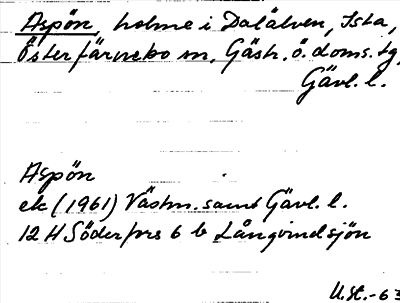 Aspön, holme i Dalälven, Ista,
Österfärnebo sn, Gästr. ö. doms. tg,
Gävl. l.
Aspön
ek (1961) Västm. samt Gävl. l.
12 H Söderfors 6 b Långvindsjön
U.St.-63